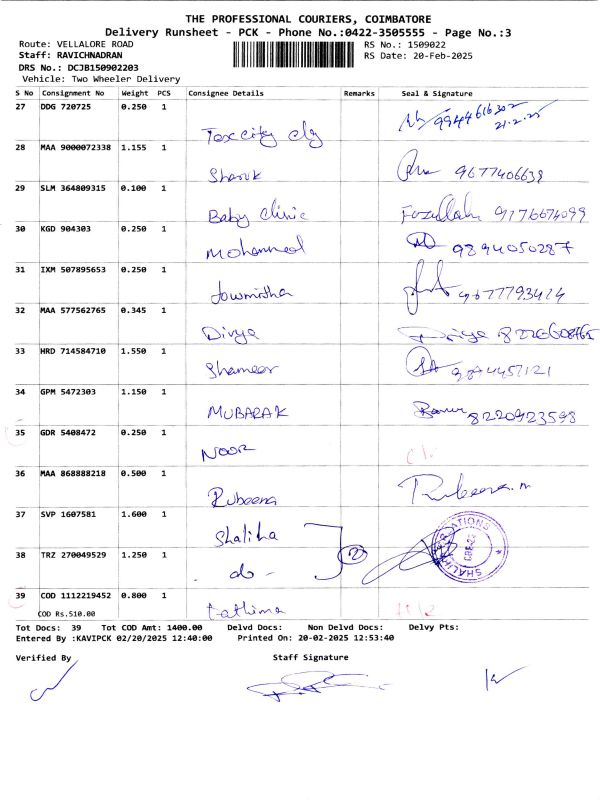 THE PROFESSIONAL COURIERS, COIMBATORE
Delivery Runsheet - PCK - Phone No.:0422-3505555 - Page No.:3
Route: VELLALORE ROAD RS No.: 1509022
Staff: RAVICHNADRAN RS Date: 20-Feb-2025
DRS No.: DCJB150902203
Vehicle: Two Wheeler Delivery
S No Consignment No Weight PCS Consignee Details Remarks Seal & Signature
27 DDG 720725 0.250 1 9944616302
21-2-25
28 MAA 9000072338 1.155 1
Sharuk 9677406639
29 SLM 364809315 0.100 1
Baby Clinic Fazullah 9176674099
30 KGD 904303 0.250 1
Mohammed 9894050287
31 IXM 507895653 0.250 1
Jowmistha 9677793414
32 MAA 577562765 0.345 1
Divya Divya
33 HRD 714584710 1.550 1
Shameer 9894457121
34 GPM 5472303 1.150 1
MUBARAK 8220923593
35 GDR 5408472 0.250 1
NOOR
36 MAA 868888218 0.500 1
Rubeena Rubeena
37 SVP 1607581 1.600 1
Shaliha
38 TRZ 270049529 1.250 1
do 2
39 COD 1112219452 0.800 1
COD Rs.510.00 Fathima
Tot Docs: 39 Tot COD Amt: 1400.00 Delvd Docs: Non Delvd Docs: Delvy Pts:
Entered By :KAVIPCK 02/20/2025 12:40:00 Printed On: 20-02-2025 12:53:40
Verified By Staff Signature